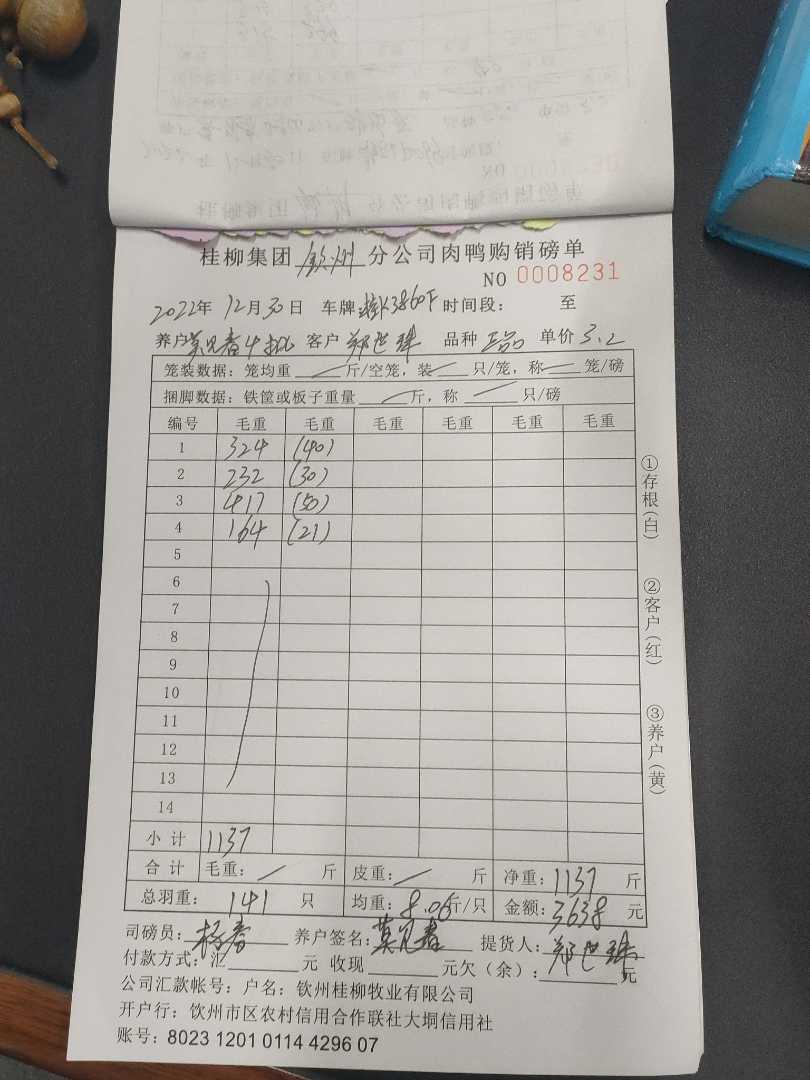 桂柳集团 钦州 分公司肉鸭购销磅单
NO 0008231
2022年 12月30日 车牌: 桂K3860F 时间段: 至
养户 莫兄春4批 客户 郑世珠 品种 正品 单价 3.2
笼装数据: 笼均重 斤/空笼, 装 只/笼, 称 笼/磅
捆脚数据: 铁筐或板子重量 斤, 称 只/磅
编号 毛重 毛重 毛重 毛重 毛重 毛重
1 324 (40)
2 232 (30)
3 417 (50)
4 164 (21)
5
6
7
8
9
10
11
12
13
14
小计 1137
合计 毛重: 斤 皮重: 斤 净重: 1137 斤
总羽重: 141 只 均重: 8.06斤/只 金额: 3638 元
司磅员: 杨春 养户签名: 莫兄春 提货人: 郑世珠
付款方式: 汇 元 收现 元欠(余): 元
公司汇款帐号: 户名: 钦州桂柳牧业有限公司
开户行: 钦州市区农村信用合作联社大垌信用社
账号: 8023 1201 0114 4296 07
①存根(白)
②客户(红)
③养户(黄)